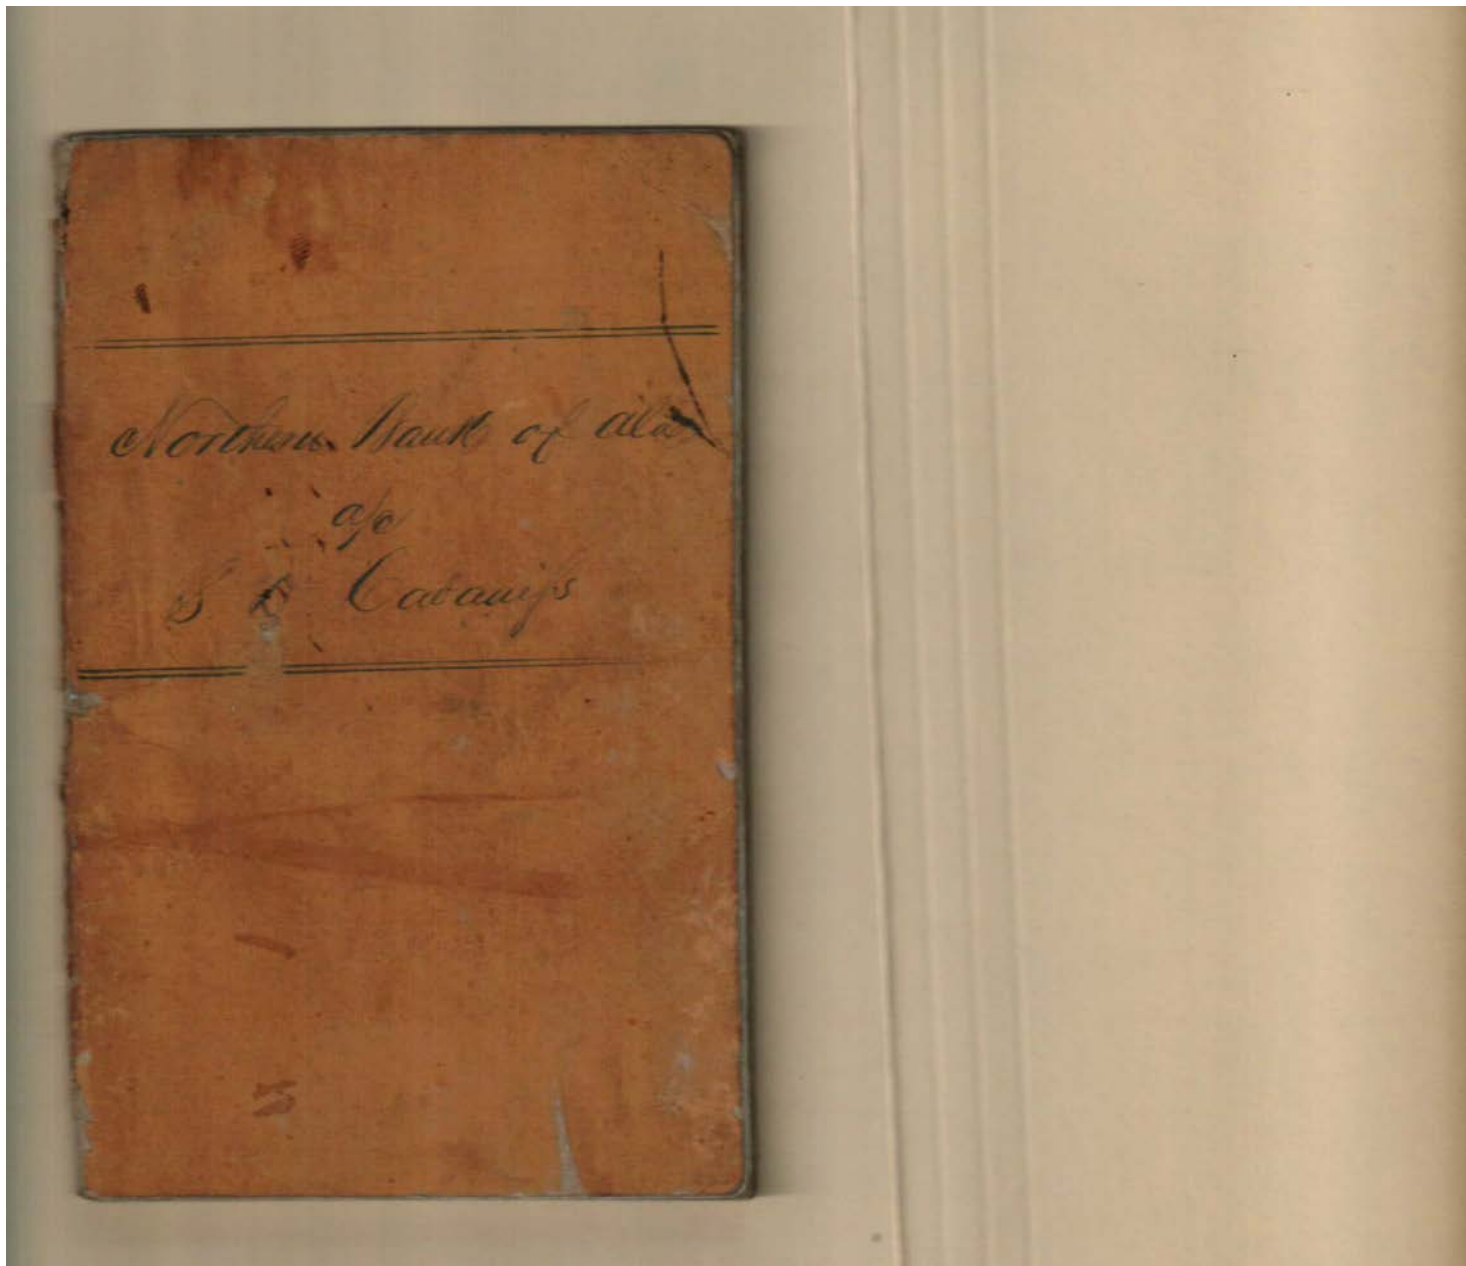 Northern Bank of Ala
a/c
S D Cabaniss